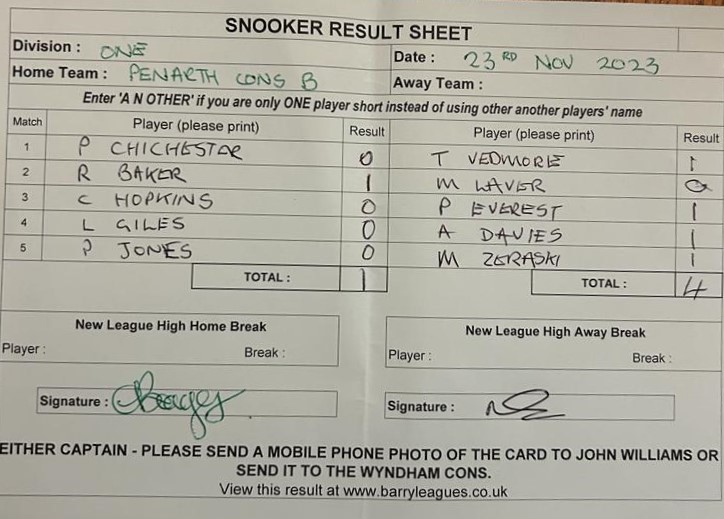 SNOOKER RESULT SHEET
Division : ONE Date : 23RD NOV 2023
Home Team : PENARTH CONS B Away Team :
Enter 'A N OTHER' if you are only ONE player short instead of using other another players' name
Match Player (please print) Result Player (please print) Result
1 P CHICHESTER 0 T VEDMORE 1
2 R BAKER 1 M LAVER 0
3 C HOPKINS 0 P EVEREST 1
4 L GILES 0 A DAVIES 1
5 P JONES 0 M ZERASKI 1
TOTAL : 1 TOTAL : 4
New League High Home Break New League High Away Break
Player : Break : Player : Break :
Signature : Signature :
EITHER CAPTAIN - PLEASE SEND A MOBILE PHONE PHOTO OF THE CARD TO JOHN WILLIAMS OR
SEND IT TO THE WYNDHAM CONS.
View this result at www.barryleagues.co.uk